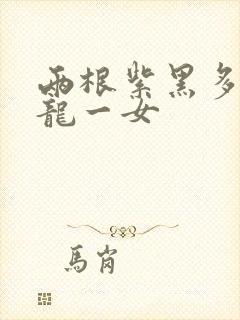 兩根紫黑多
龍一女
馬崗